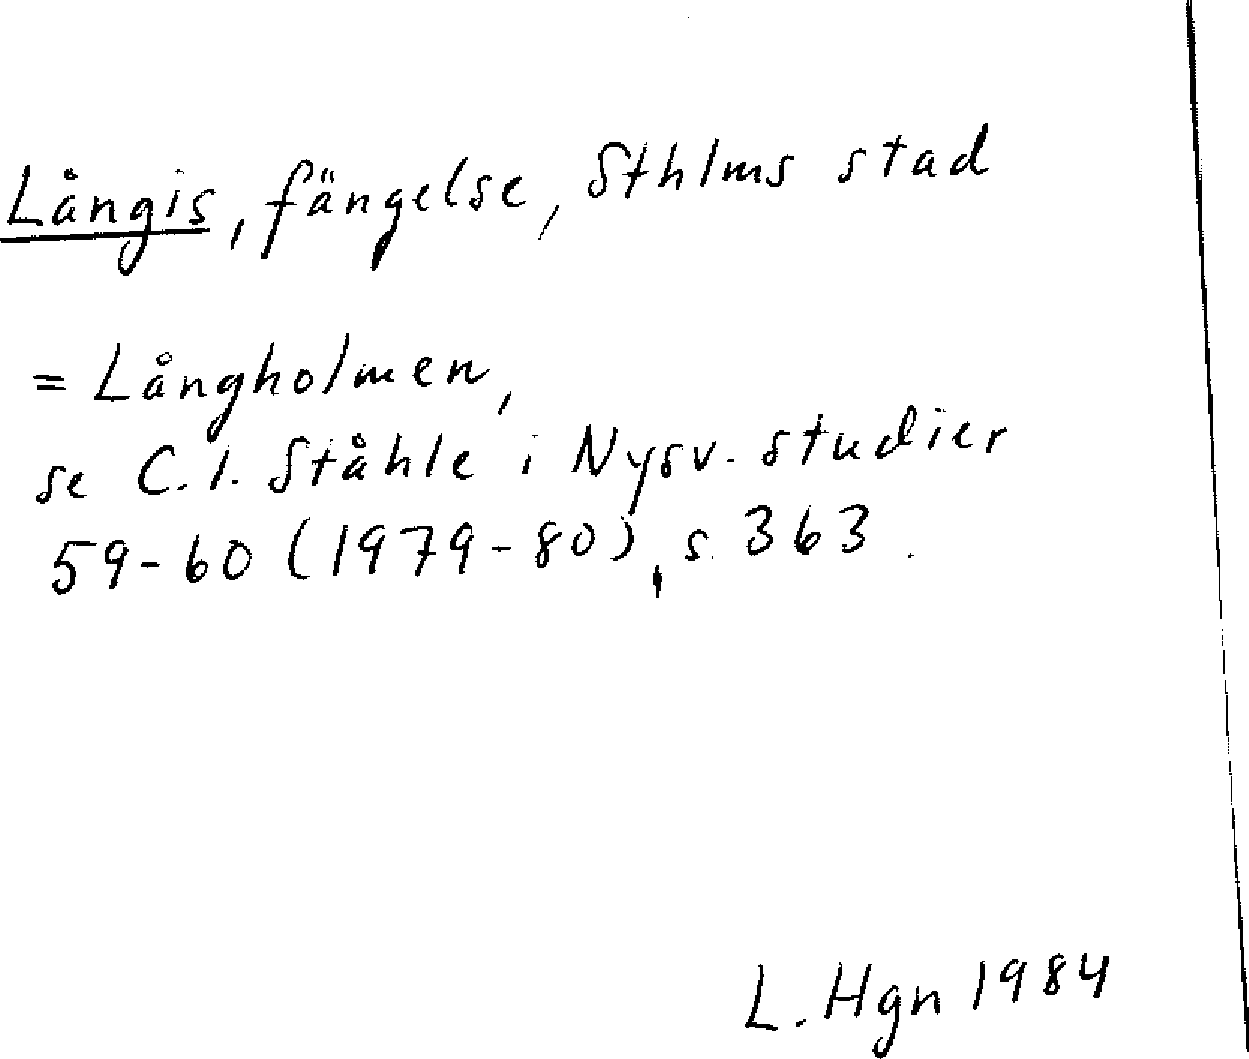 Långis, fängelse, Sthlms stad
= Långholmen,
se C.I. Ståhle i Nysv. studier
59-60 (1979-80), s. 363.
L. Hgn 1984